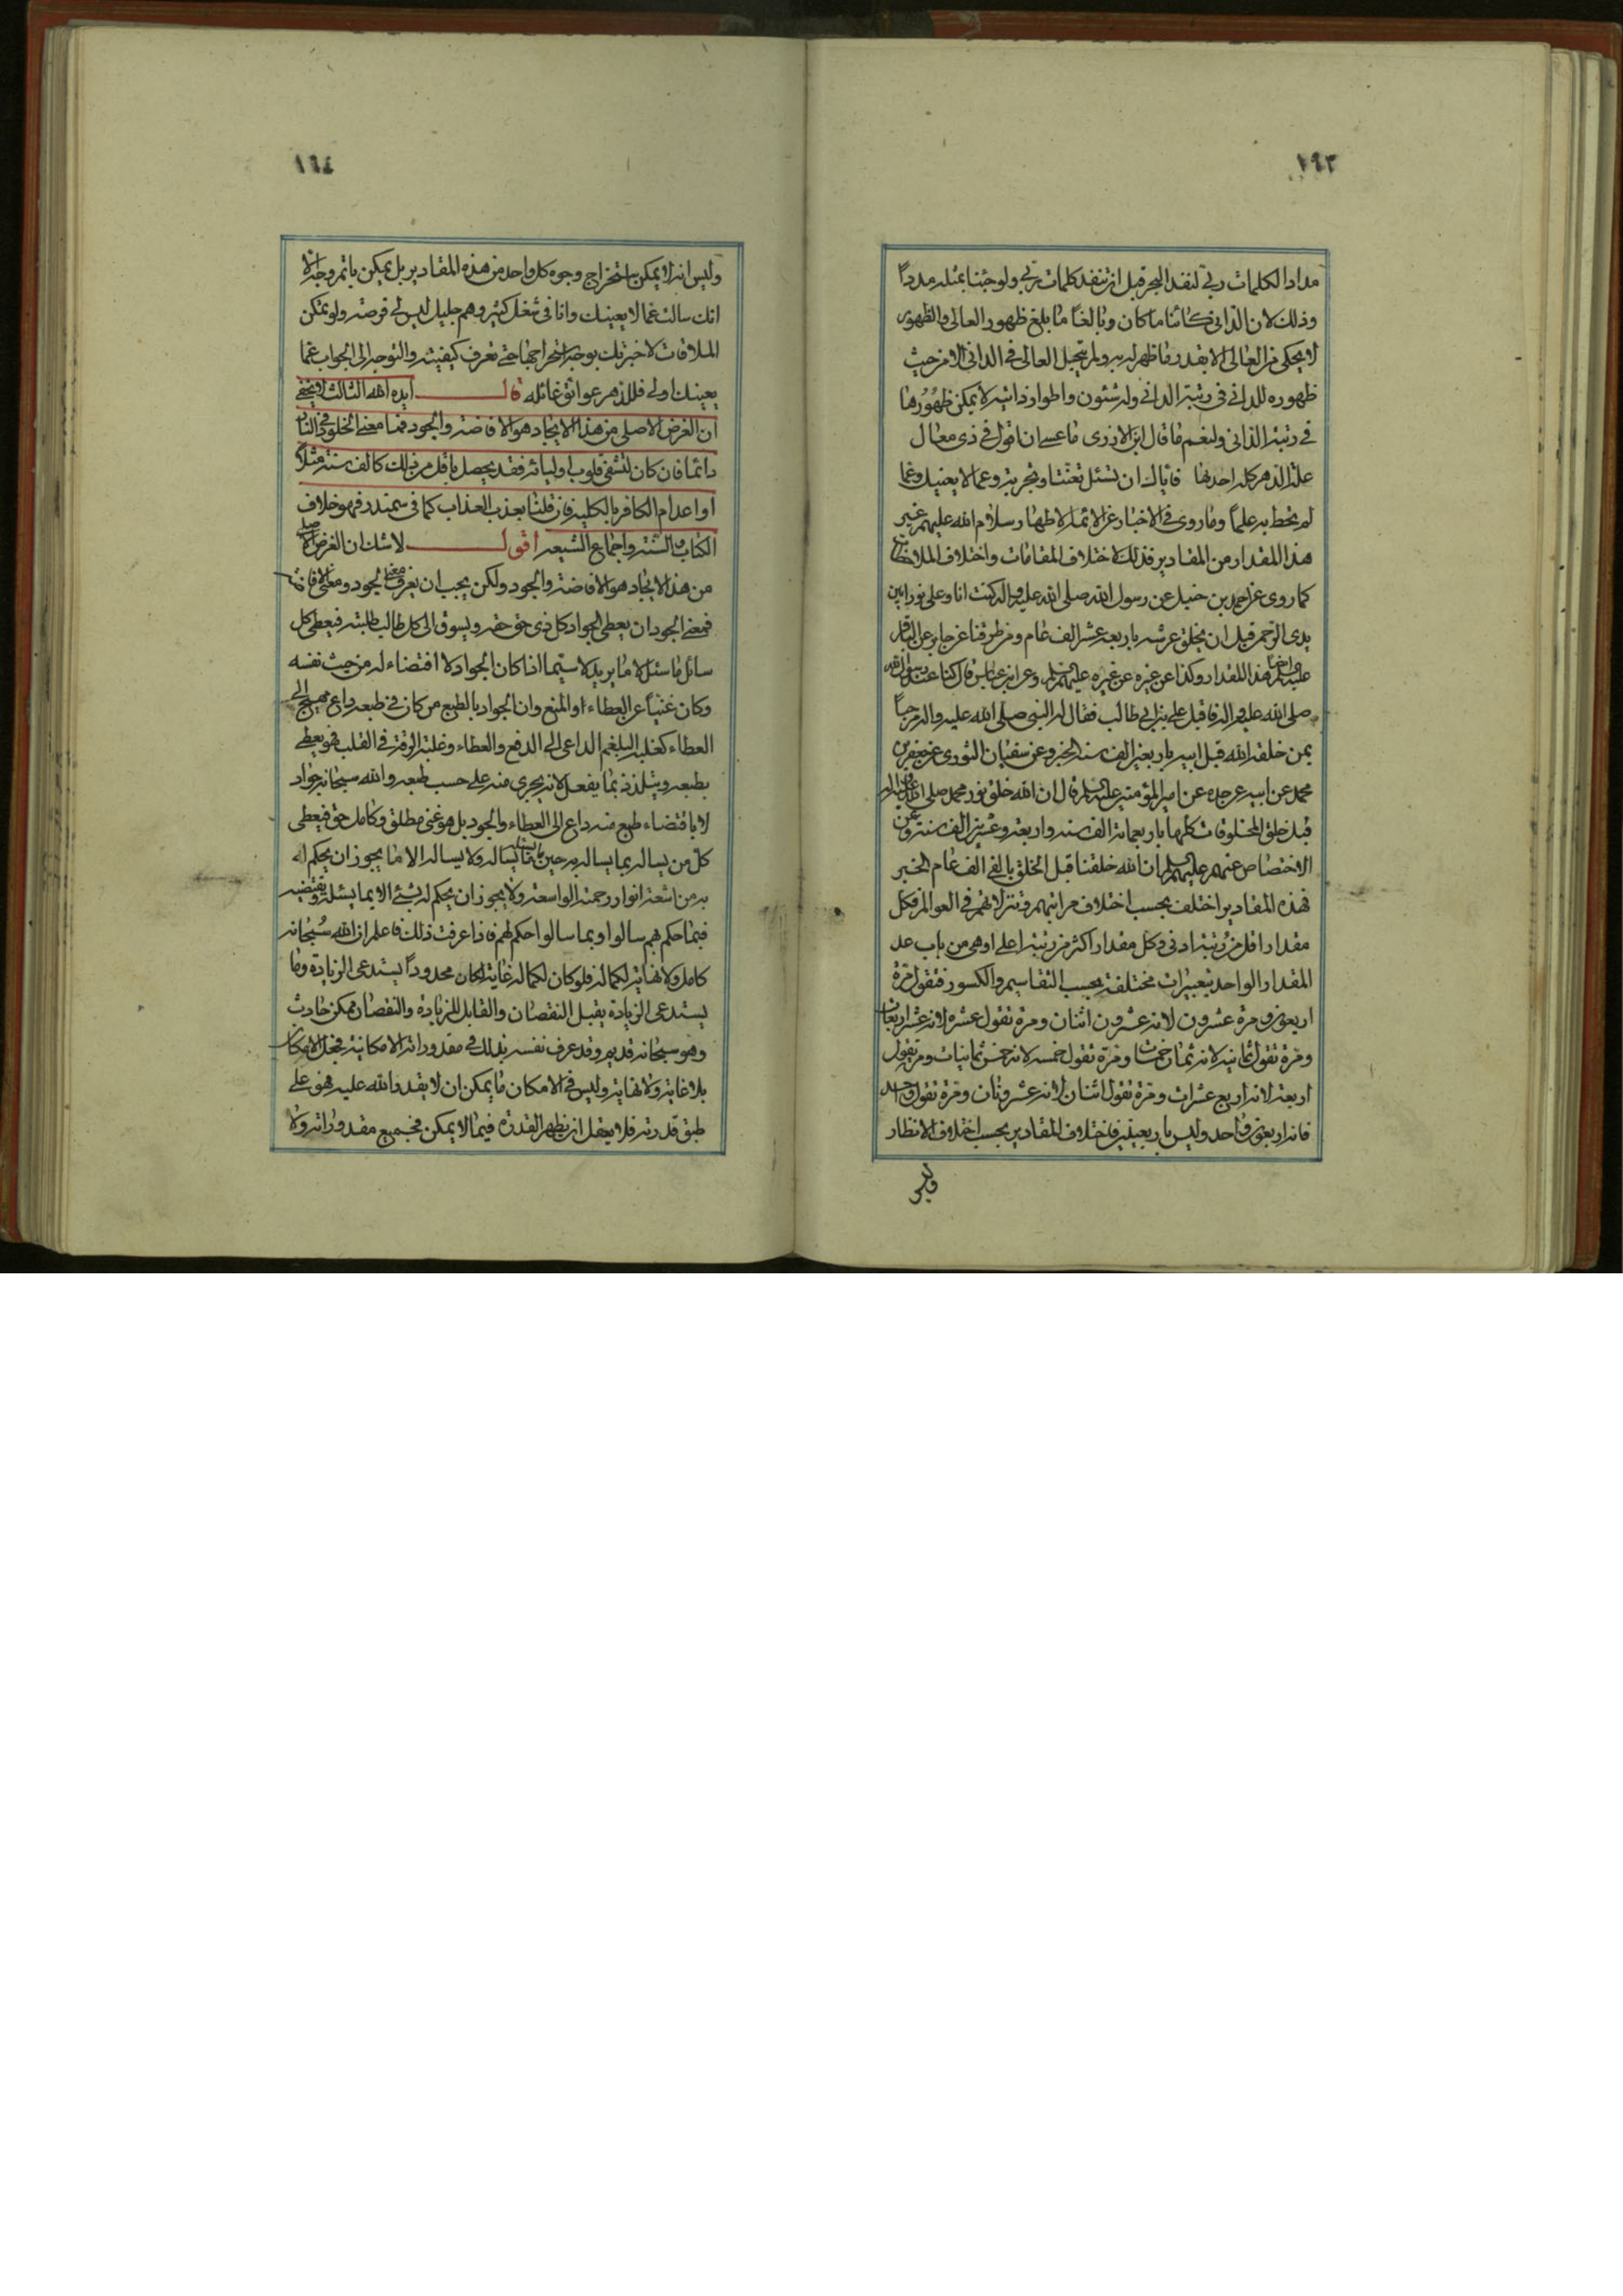 ١٦٣
مدادا لكلمات ربي لنفد البحر قبل ان تنفد كلمات ربي ولو جئنا بمثله مددا
وذلك لان الداني كائنا ما كان وبالغا ما بلغ ظهور العالي والظهور
لا يحكي من العالي الا بقدر ما ظهر له به ولم يتجل العالي في الداني الا من حيث
ظهوره للداني في رتبة الداني وله شئون واطوار ذاتية لا يمكن ظهورها
في رتبة الداني ولنعم ما قال ابن الازري ما عسى ان اقول في ذي معال
علة الدهر كله احديها فاياك ان تسئل تعنتا وتجربة وعما لا يعنيك وعما
لم تحط به علما وما روي في الاخبار عن الائمة الاطهار سلام الله عليهم غير
هذا المقدار من المقادير فذلك لاختلاف المقامات واختلاف الملاحظات
كما روي عن احمد بن حنبل عن رسول الله صلى الله عليه واله كنت انا وعلي نورا بين
يدي الرحمن قبل ان يخلق عرشه باربعة عشر الف عام ومن طرقنا عن جابر عن الباقر
عليه السلم ايضا هذا المقدار وكذا عن غيره عن غيره عليهم السلم وعن ابن عباس قال كنا عند رسول الله
صلى الله عليه واله فاقبل علي بن ابي طالب فقال له النبي صلى الله عليه واله مرحبا
بمن خلقه الله قبل ابيه باربعين الف سنة الخبر وعن سفيان الثوري عن جعفر بن
محمد عن ابيه عن جده عن امير المؤمنين عليه السلم قال ان الله خلق نور محمد صلى الله عليه واله
قبل خلق المخلوقات كلها باربعمائة الف سنة واربعة وعشرين الف سنة وعن
الاختصاص عنهم عليهم السلم ان الله خلقنا قبل الخلق بالفي الف عام الخبر
فهذه المقادير اختلف بحسب اختلاف مراتبهم وتنزلاتهم في العوالم فكل
مقدار اقل من رتبة ادنى وكل مقدار اكثر من رتبة اعلى او هي من باب عد
المقدار الواحد بتعبيرات مختلفة بحسب التقاسيم والكسور فتقول مرة
اربعون ومرة عشرون لانه عشرون اثنان ومرة تقول عشرة لانه عشر اربعات
ومرة تقول ثمانية لانه ثمان خمسات ومرة تقول خمسة لانه خمس ثمانيات ومرة تقول
اربعة لانه اربع عشرات ومرة تقول اثنان لانه عشرونان ومرة تقول واحد
فانه اربعون واحد وليس باربعينين فاختلاف المقادير بحسب اختلاف الانظار
وليس
١٦٤
وليس انه لا يمكن استخراج وجوه كل واحد من هذه المقادير بل يمكن باتم وجه الا
انك سالت عما لا يعنيك وانا في شغل كثير وهم جليل ليس لي فرصة ولو تمكن
الملاقات لاخبرتك بوجه استخراجها حتى تعرف كيفيته والتوجه الى الجواب عما
يعنيك اولى فللدهر عوائق غائلة قال ايده الله الثالث لا يخفى
ان الغرض الاصلي من هذا الايجاد هو الافاضة والجود فما معنى الخلود في النار
دائما فان كان لتشفي قلوب اوليائه فقد يحصل باقل من ذلك كالف سنة مثلا
او اعدام الكافر بالكلية فان قلنا بعذب العذاب كما في سمندر فهو خلاف
الكتاب والسنة واجماع الشيعة اقول لا شك ان الغرض الاصلي
من هذا الايجاد هو الافاضة والجود ولكن يجب ان يعرف معنى الجود ومعنى الافاضة
فمعنى الجود ان يعطي الجواد كل ذي حق حقه ويسوق الى كل طالب طلبته فيعطي كل
سائل ما سئل لا ما يريد لا سيما اذا كان الجواد لا اقتضاء له من حيث نفسه
وكان غنيا عن العطاء او المنع وان الجواد بالطبع من كان في طبعه داع مهيج الى
العطاء كغلبة البلغم الداعي الى الدفع والعطاء وغلبة الرقة في القلب فهو يعطي
بطبعه ويتلذذ بما يفعل لانه يجري منه على حسب طبعه والله سبحانه جواد
لا باقتضاء طبع منه داع الى العطاء والجود بل هو غني مطلق وكامل حق فيعطي
كل من يساله بما يساله من حين ما يساله ولا يساله الا ما يجوز ان يحكم له
به من اشعة انوار رحمته الواسعة ولا يجوز ان يحكم له بشئ الا بما يسئله ويقتضيه
فبما حكم لهم سالوا وبما سالوا حكم لهم فاذا عرفت ذلك فاعلم ان الله سبحانه
كامل ولا نهاية لكماله فلو كان لكماله غاية لكان محدودا يستدعي الزيادة وما
يستدعي الزيادة يقبل النقصان والقابل للزيادة والنقصان ممكن حادث
وهو سبحانه قديم وقد عرف نفسه بذلك في مقدوراته الامكانية فجعل الامكان
بلا غاية ولا نهاية وليس في الامكان ما يمكن ان لا يقدر الله عليه فهو على
طبق قدرته فلا يعقل ان يظهر القدرة فيما لا يمكن فجميع مقدوراته ولا